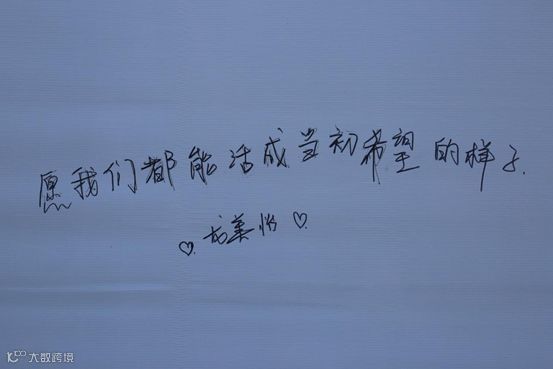 愿我们都能活成当初希望的样子.
♡. 龙美怡 ♡.
大数跨境